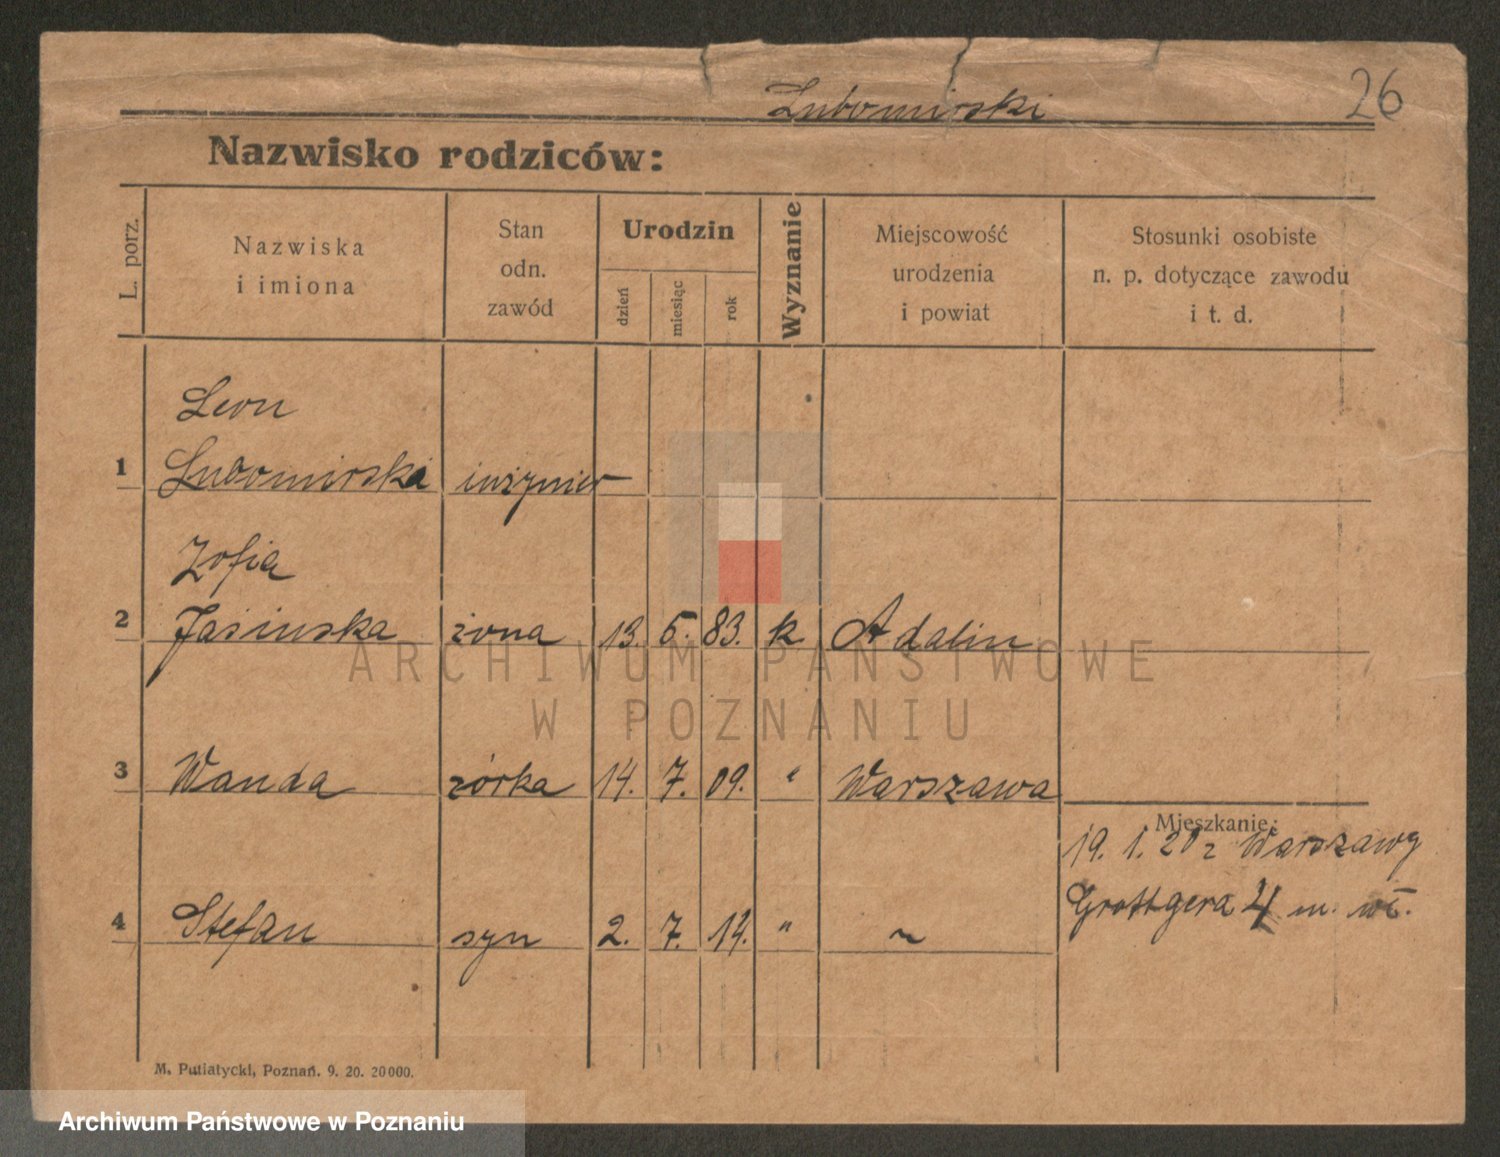 Lubomirski
26
Nazwisko rodziców:
L. porz.
Nazwiska
i imiona
Stan
odn.
zawód
Urodzin
dzień
miesiąc
rok
Wyznanie
Miejscowość
urodzenia
i powiat
Stosunki osobiste
n. p. dotyczące zawodu
i t. d.
Leon
1 Lubomirski inżynier
Zofia
2 Jasińska żona 13. 5. 83. k. Adalin
ARCHIWUM PAŃSTWOWE
W POZNANIU
3 Wanda córka 14. 7. 09. " Warszawa
Mieszkanie:
19. 1. 20 z Warszawy
Grottgera 4 m.
4 Stefan syn 2. 7. 14. " ~
M. Putiatycki, Poznań. 9. 20. 20000.
Archiwum Państwowe w Poznaniu